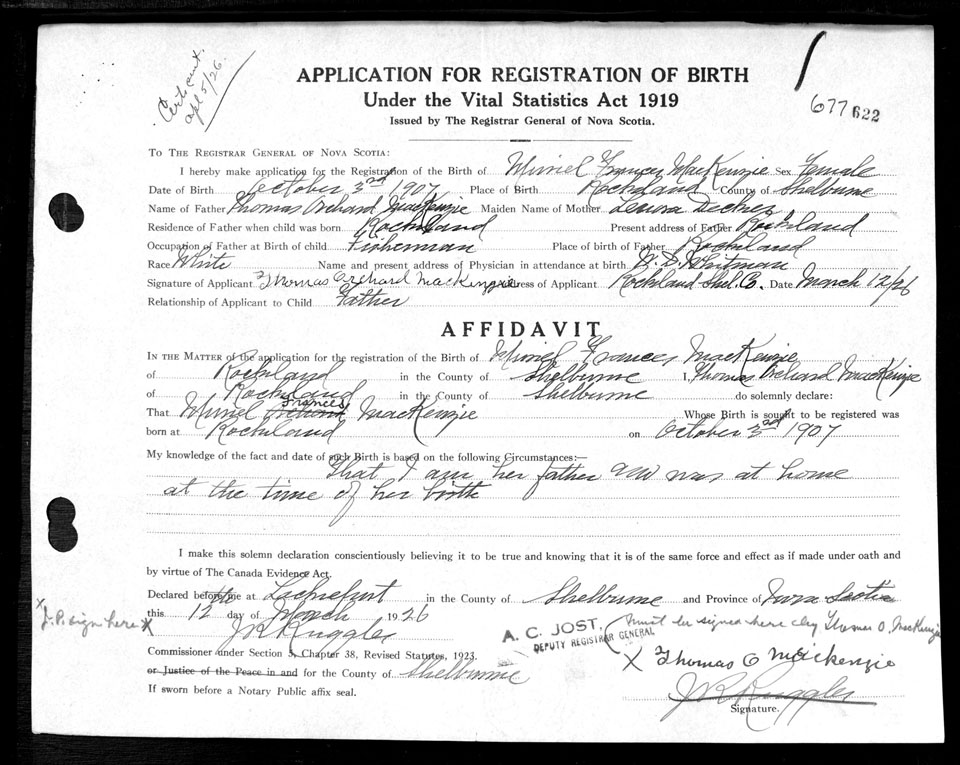 Cert sent
apl 5/26.
APPLICATION FOR REGISTRATION OF BIRTH
Under the Vital Statistics Act 1919
Issued by The Registrar General of Nova Scotia.
677622
To The Registrar General of Nova Scotia:
I hereby make application for the Registration of the Birth of Muriel Frances MacKenzie Sex Female
Date of Birth October 3rd 1907 Place of Birth Rockland County of Shelburne
Name of Father Thomas Orchard MacKenzie Maiden Name of Mother Lenora Decker
Residence of Father when child was born Rockland Present address of Father Rockland
Occupation of Father at Birth of child Fisherman Place of birth of Father Rockland
Race White Name and present address of Physician in attendance at birth Whitman
Signature of Applicant Thomas Orchard MacKenzie Address of Applicant Rockland Shel. Co. Date March 12/26
Relationship of Applicant to Child Father
AFFIDAVIT
In the Matter of the application for the registration of the Birth of Muriel Frances MacKenzie
of Rockland in the County of Shelburne I, Thomas Orchard MacKenzie
of Rockland in the County of Shelburne do solemnly declare:
That Muriel Frances Orchard MacKenzie Whose Birth is sought to be registered was
born at Rockland on October 3rd 1907
My knowledge of the fact and date of such Birth is based on the following Circumstances:—
That I am her father and was at home
at the time of her birth
I make this solemn declaration conscientiously believing it to be true and knowing that it is of the same force and effect as if made under oath and
by virtue of The Canada Evidence Act.
Declared before me at Lockeport in the County of Shelburne and Province of Nova Scotia
this 12th day of March 1926
X J. P. sign here X
J R Ruggles
A. C. JOST,
DEPUTY REGISTRAR GENERAL
must be signed here by Thomas O. MacKenzie
Commissioner under Section 5, Chapter 38, Revised Statutes, 1923.
X Thomas O Mackenzie
or Justice of the Peace in and for the County of Shelburne
J R Ruggles
If sworn before a Notary Public affix seal.
Signature.